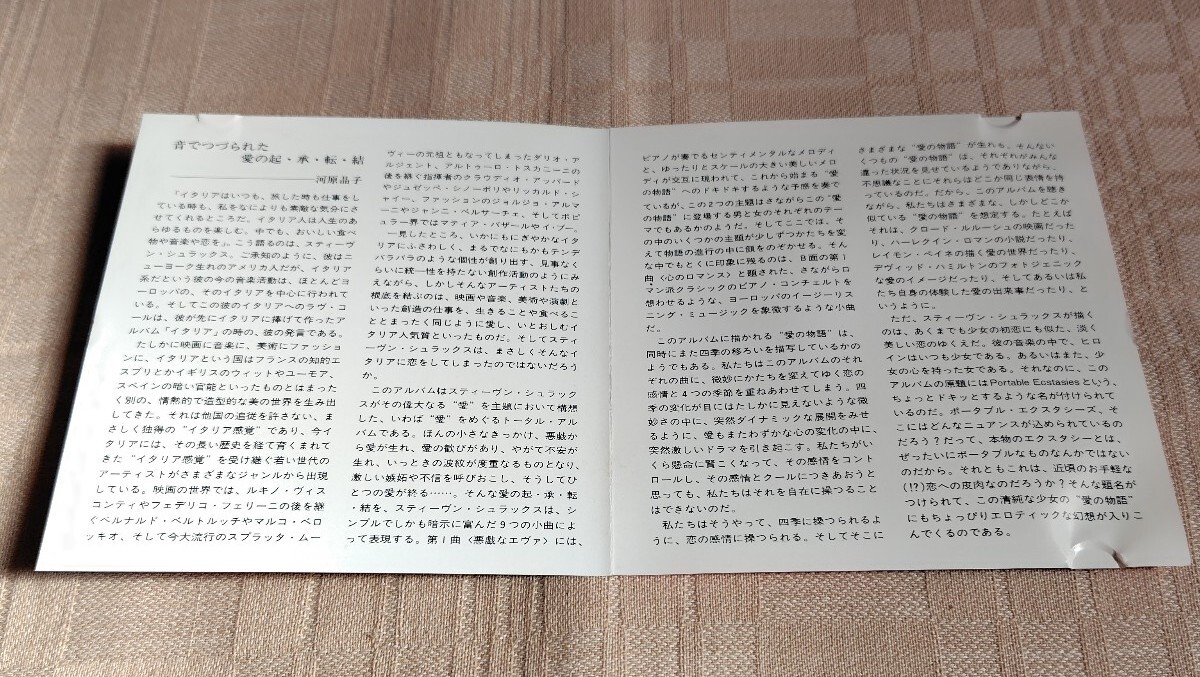 音でつづられた
愛の起・承・転・結
河原晶子
「イタリアはいつも、旅した時も仕事をし
ている時も、私をなによりも素敵な気分にさ
せてくれるところだ。イタリア人は人生のあ
らゆるものを楽しむ。中でも、おいしい食べ
物や音楽や恋を」。こう語るのは、スティーヴ
ン・シュラックス。ご承知のように、彼はニ
ューヨーク生れのアメリカ人だが、イタリア
系だという彼の今の音楽活動は、ほとんどヨ
ーロッパの、そのイタリアを中心に行われて
いる。そしてこの彼のイタリアへのラヴ・コ
ールは、彼が先にイタリアに捧げて作ったア
ルバム「イタリア」の時の、彼の発言である。
たしかに映画に音楽に、美術にファッショ
ンに、イタリアという国はフランスの知的エ
スプリとかイギリスのウィットやユーモア、
スペインの暗い官能といったものとはまった
く別の、情熱的で造型的な美の世界を生み出
してきた。それは他国の追従を許さない、ま
さしく独得の“イタリア感覚”であり、今イ
タリアには、その長い歴史を経て育くまれて
きた“イタリア感覚”を受け継ぐ若い世代の
アーティストがさまざまなジャンルから出現
している。映画の世界では、ルキノ・ヴィス
コンティやフェデリコ・フェリーニの後を継
ぐベルナルド・ベルトルッチやマルコ・ベロ
ッキオ、そして今大流行のスプラッタ・ムー
ヴィーの元祖ともなってしまったダリオ・ア
ルジェント、アルトゥーロ・トスカニーニの
後を継ぐ指揮者のクラウディオ・アッバード
やジュゼッペ・シノーポリやリッカルド・シ
ャイー、ファッションのジョルジョ・アルマ
ーニやジャンニ・ベルサーチェ、そしてポピ
ュラー界ではマティア・バザールやイ・プー。
一見したところ、いかにもにぎやかなイタ
リアにふさわしく、まるでなにもかもテンデ
バラバラのような個性が創り出す、見事なく
らいに統一性を持たない創作活動のようにみ
えながら、しかしそんなアーティストたちの
根底を結ぶのは、映画や音楽、美術や演劇と
いった創造の仕事を、生きることや食べるこ
ととまったく同じように愛し、いとおしむイ
タリア人気質といったものだ。そしてスティ
ーヴン・シュラックスは、まさしくそんなイ
タリアに恋をしてしまったのではないだろう
か。
このアルバムはスティーヴン・シュラック
スがその偉大なる“愛”を主題において構想
した、いわば“愛”をめぐるトータル・アル
バムである。ほんの小さなきっかけ、悪戯か
ら愛が生れ、愛の歓びがあり、やがて不安が
生れ、いっときの波紋が度重なるものとなり、
激しい嫉妬や不信を呼びおこし、そうしてひ
とつの愛が終る……。そんな愛の起・承・転
・結を、スティーヴン・シュラックスは、シ
ンプルでしかも暗示に富んだ9つの小曲によ
って表現する。第1曲〈悪戯なエヴァ〉には、
ピアノが奏でるセンティメンタルなメロディ
と、ゆったりとスケールの大きい美しいメロ
ディが交互に現われて、これから始まる“愛
の物語”へのドキドキするような予感を奏で
ているが、この2つの主題はさながらこの“愛
の物語”に登場する男と女のそれぞれのテー
マでもあるかのようだ。そしてここでは、そ
の中のいくつかの主題が少しずつかたちを変
えて物語の進行の中に顔をのぞかせる。そん
な中でもとくに印象に残るのは、B面の第1
曲〈心のロマンス〉と題された、さながらロ
マン派クラシックのピアノ・コンチェルトを
想わせるような、ヨーロッパのイージーリス
ニング・ミュージックを象徴するような小曲
だ。
このアルバムに描かれる“愛の物語”は、
同時にまた四季の移ろいを描写しているかの
ようでもある。私たちはこのアルバムのそれ
ぞれの曲に、微妙にかたちを変えてゆく恋の
感情と4つの季節を重ねあわせてしまう。四
季の変化が目にはたしかに見えないような微
妙さの中に、突然ダイナミックな展開をみせ
るように、愛もまたわずかな心の変化の中に、
突然激しいドラマを引き起こす。私たちがい
くら懸命に賢こくなって、その感情をコント
ロールし、その感情とクールにつきあおうと
思っても、私たちはそれを自在に操つること
はできないのだ。
私たちはそうやって、四季に操つられるよ
うに、恋の感情に操つられる。そしてそこに
さまざまな“愛の物語”が生れる。そんない
くつもの“愛の物語”は、それぞれがみんな
違った状況を見せているようでありながら、
不思議なことにそれらはどこか同じ表情を持
っているのだ。だから、このアルバムを聴き
ながら、私たちはさまざまな、しかしどこか
似ている“愛の物語”を想定する。たとえば
それは、クロード・ルルーシュの映画だった
り、ハーレクイン・ロマンの小説だったり、
レイモン・ペイネの描く愛の世界だったり、
デヴィッド・ハミルトンのフォトジェニック
な愛のイメージだったり、そしてあるいは私
たち自身の体験した愛の出来事だったり、と
いうように。
ただ、スティーヴン・シュラックスが描く
のは、あくまでも少女の初恋にも似た、淡く
美しい恋のゆくえだ。彼の音楽の中で、ヒロ
インはいつも少女である。あるいはまた、少
女の心を持った女である。それなのに、この
アルバムの原題にはPortable Ecstasiesという、
ちょっとドキッとするような名が付けられて
いるのだ。ポータブル・エクスタシーズ、そ
こにはどんなニュアンスが込められているの
だろう？だって、本物のエクスタシーとは、
ぜったいにポータブルなものなんかではない
のだから。それともこれは、近頃のお手軽な
(!?)恋への皮肉なのだろうか？そんな題名が
つけられて、この清純な少女の“愛の物語”
にもちょっぴりエロティックな幻想が入りこ
んでくるのである。